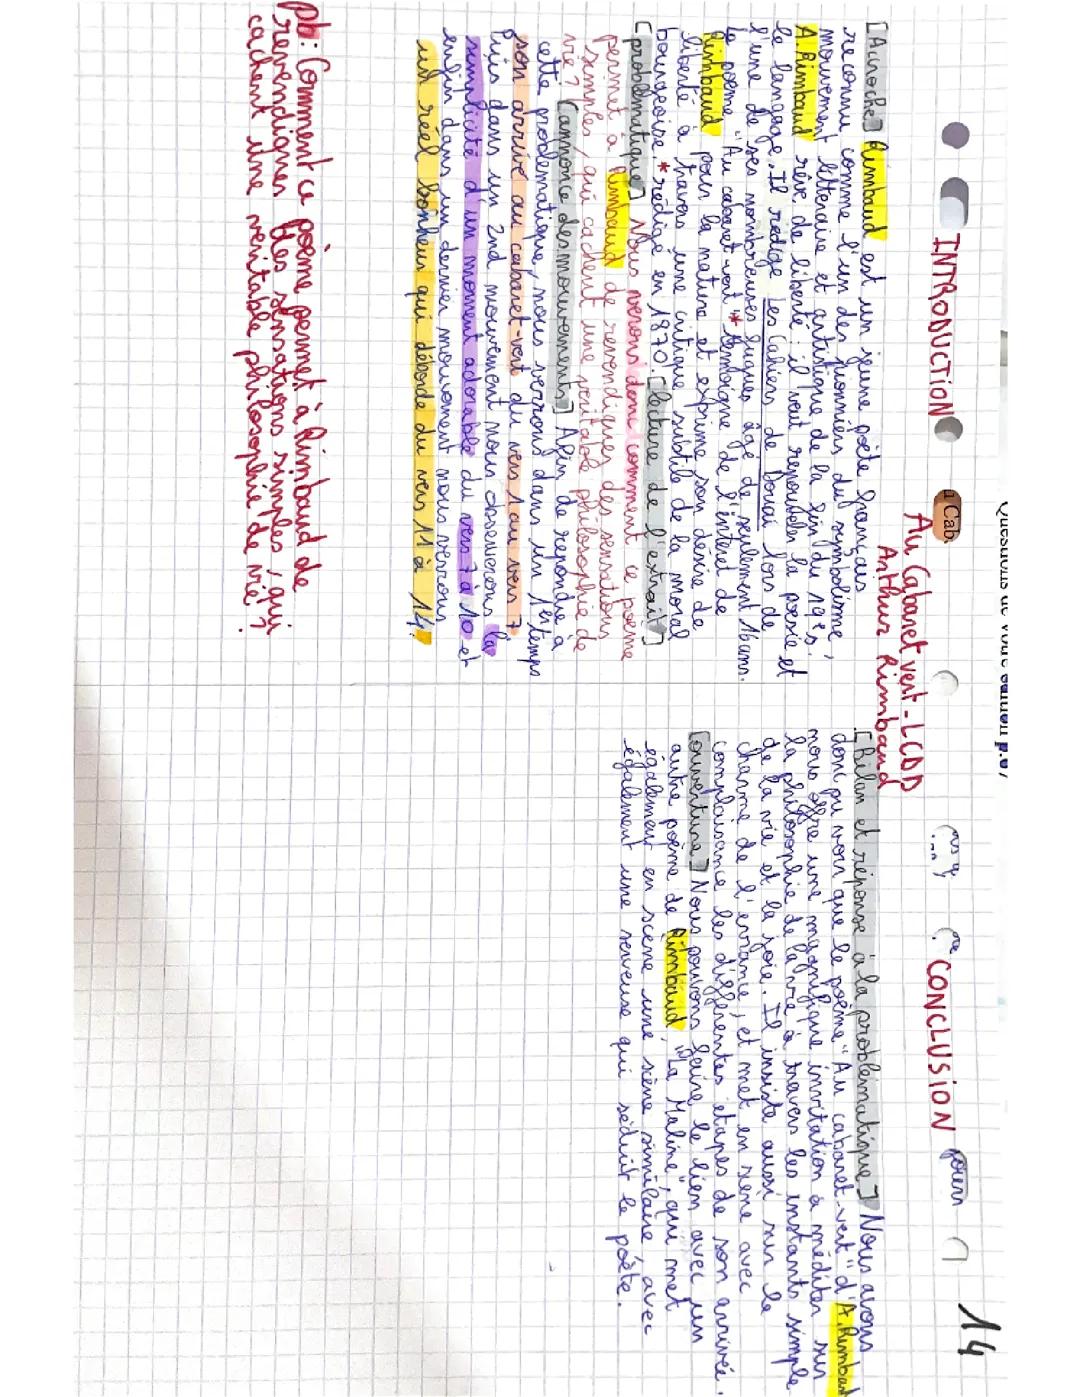 Questions de votre édition p.67
14
INTRODUCTION
a Cab.
Au Cabaret vert - LCDD
Arthur Rimbaud
[Accroche] Rimbaud est un jeune poète français
reconnu comme l'un des pionniers du symbolisme,
mouvement littéraire et artistique de la fin du 19e s.
A. Rimbaud rêve de liberté : il veut repousser la poésie et
le langage. Il rédige Les Cahiers de Douai lors de
l'une de ses nombreuses fugues âgé de seulement 16 ans.
Le poème "Au cabaret-vert"* témoigne de l'intérêt de
Rimbaud pour la nature et exprime son désir de
liberté à travers une critique subtile de la moral
bourgeoise. *rédigé en 1870. [lecture de l'extrait]
[problématique] Nous verons donc comment ce poème
permet à Rimbaud de revendiquer des sensations
simples, qui cachent une véritable philosophie de
vie ? [annonce des mouvements] Afin de répondre à
cette problématique, nous verrons dans un 1er temps
son arrivé au cabaret-vert du vers 1 au vers 7
Puis dans un 2nd mouvement nous observerons la
simplicité d'un moment adorable du vers 7 à 10 et
enfin dans un dernier mouvement nous verrons
un réel bonheur qui déborde du vers 11 à 14.
pb : Comment ce poème permet à Rimbaud de
revendiquer des sensations simples, qui
cachent une véritable philosophie de vie ?
CONCLUSION
[Bilan et réponse à la problématique] Nous avons
donc pu voir que le poème "Au cabaret-vert" d'A. Rimbaud
nous offre une magnifique invitation à méditer sur
la philosophie de la vie à travers les instants simple
de la vie et la joie. Il insiste aussi sur le
charme de l'errance, et met en scène avec
complaisance les différentes étapes de son arrivée.
[ouverture] Nous pouvons faire le lien avec un
autre poème de Rimbaud, "La Maline", qui met
également en scène une scène similaire, avec
également une serveuse qui séduit le poète.